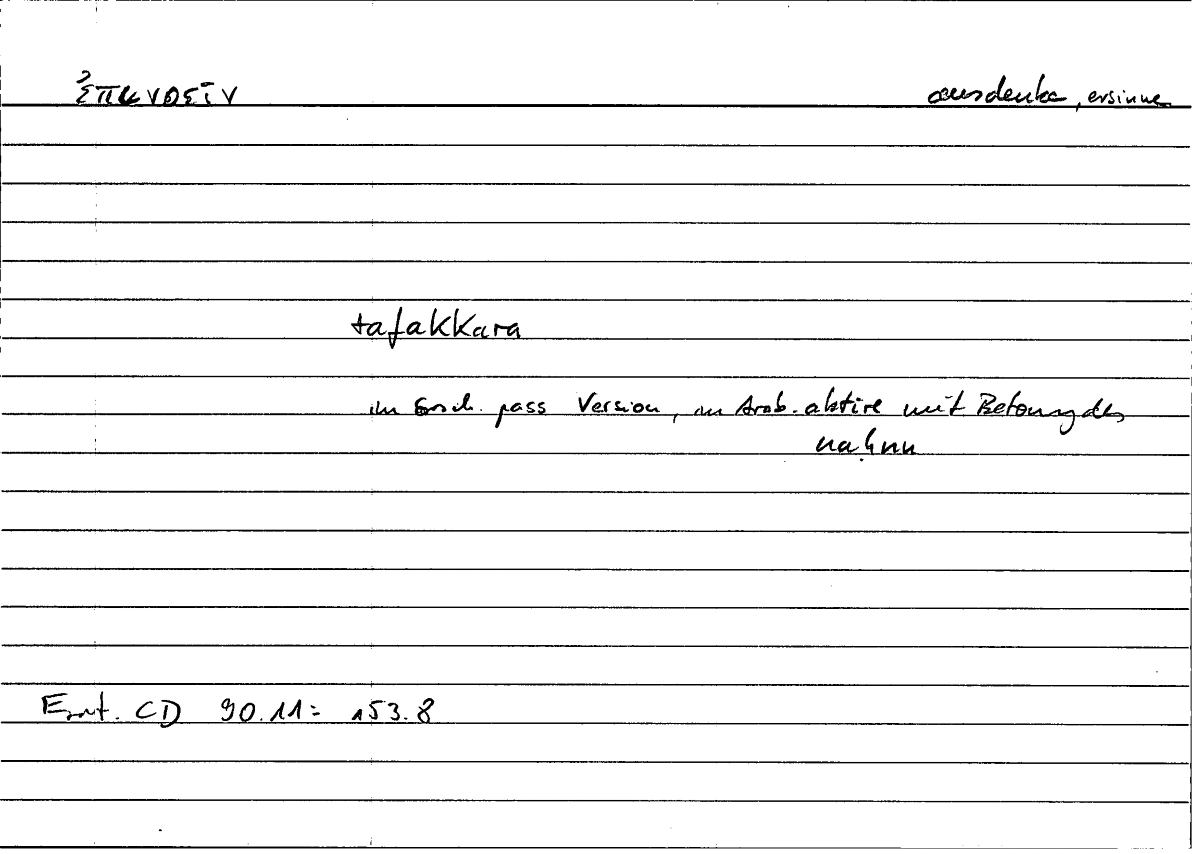 ἐπινοεῖν ausdenke, ersinne
tafakkara
im Griech. pass Version, im Arab. aktive mit Betonung des
naḥnu
CD 90.11 = 153.8